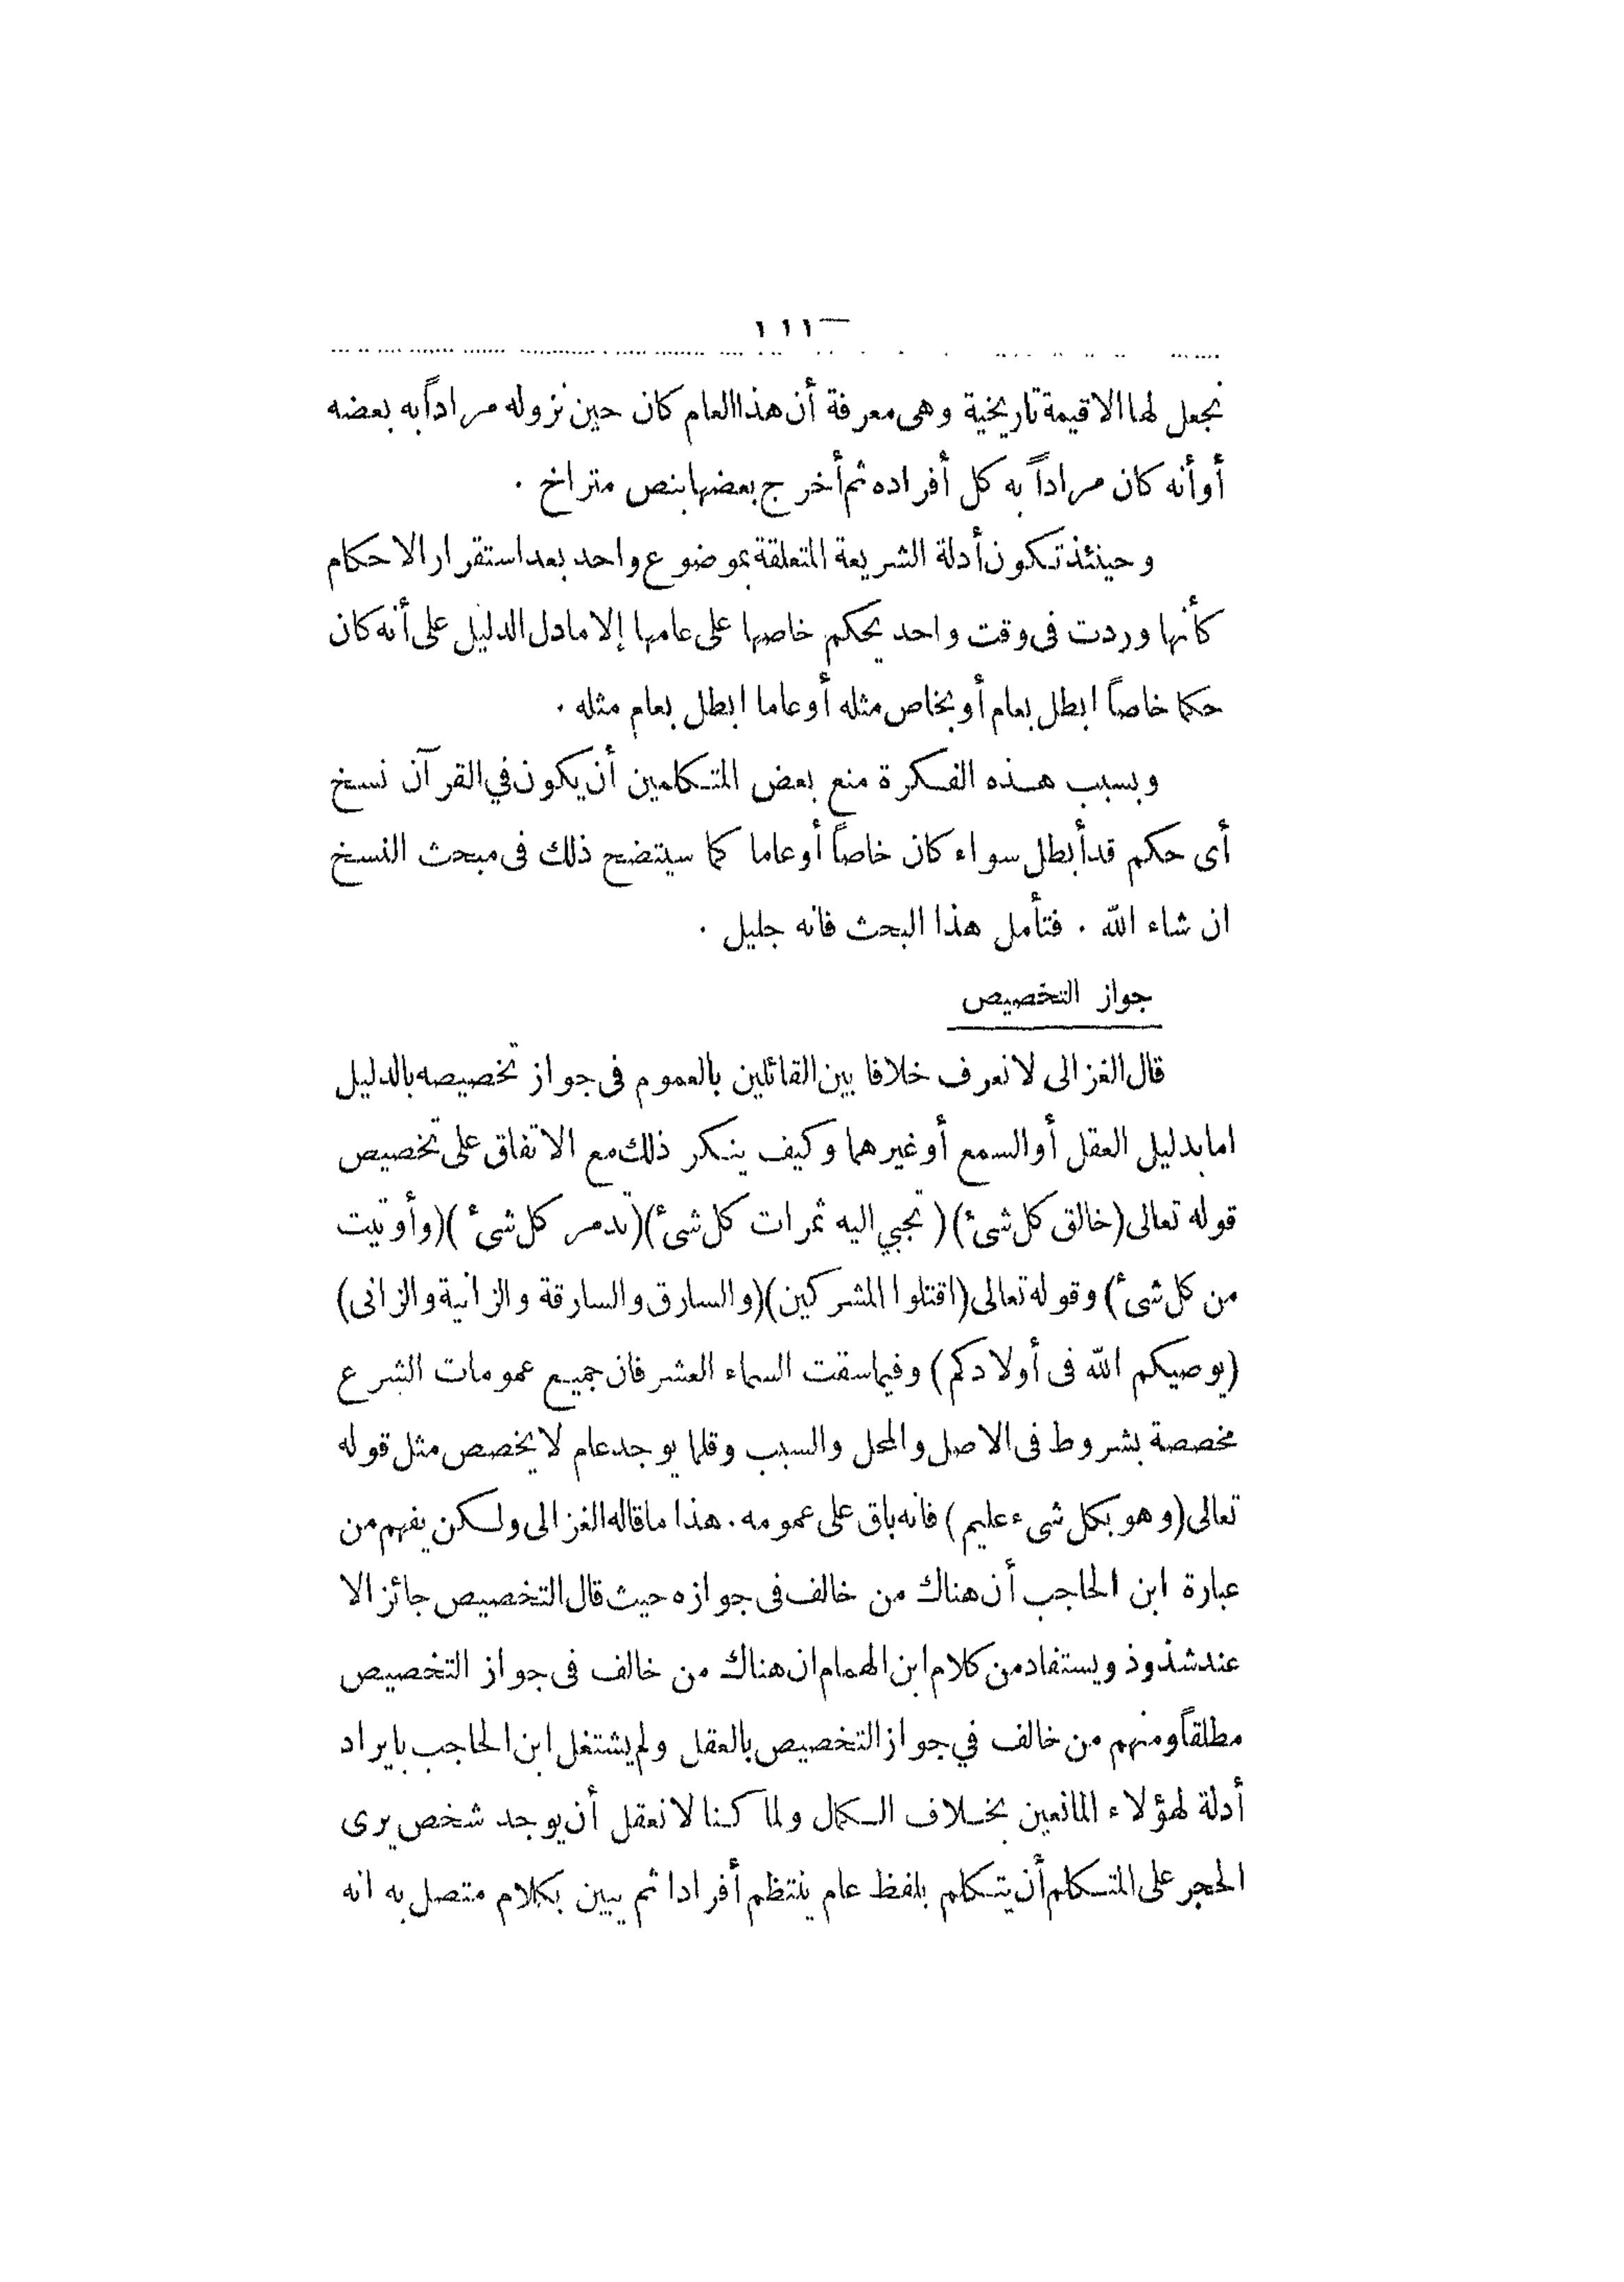 — ١١١
نجعل لها الا قيمة تاريخية وهى معرفة أن هذا العام كان حين نزوله مراداً به بعضه
أو أنه كان مراداً به كل أفراده ثم أخرج بعضها بنص متراخ .
وحينئذ تكون أدلة الشريعة المتعلقة بموضوع واحد بعد استقرار الاحكام
كأنها وردت فى وقت واحد يحكم خاصها على عامها إلا ما دل الدليل على أنه كان
حكما خاصاً ابطل بعام أو بخاص مثله أو عاما ابطل بعام مثله .
وبسبب هذه الفكرة منع بعض المتكلمين أن يكون في القرآن نسخ
أى حكم قد أبطل سواء كان خاصاً أو عاما كما سيتضح ذلك فى مبحث النسخ
ان شاء الله . فتأمل هذا البحث فانه جليل .
جواز التخصيص
قال الغزالى لا نعرف خلافا بين القائلين بالعموم فى جواز تخصيصه بالدليل
اما بدليل العقل أو السمع أو غيرهما وكيف ينكر ذلك مع الاتفاق على تخصيص
قوله تعالى (خالق كل شئ) ( تجبي اليه ثمرات كل شئ) (تدمر كل شئ ) (وأوتيت
من كل شئ) وقوله تعالى (اقتلوا المشركين) (والسارق والسارقة والزانية والزانى)
(يوصيكم الله فى أولادكم) وفيما سقت السماء العشر فان جميع عمومات الشرع
مخصصة بشروط فى الاصل والمحل والسبب وقلما يوجد عام لا يخصص مثل قوله
تعالى (وهو بكل شىء عليم ) فانه باق على عمومه . هذا ما قاله الغزالى ولكن يفهم من
عبارة ابن الحاجب أن هناك من خالف فى جوازه حيث قال التخصيص جائز الا
عند شذوذ ويستفاد من كلام ابن الهمام ان هناك من خالف فى جواز التخصيص
مطلقاً ومنهم من خالف في جواز التخصيص بالعقل ولم يشتغل ابن الحاجب بايراد
أدلة لهؤلاء المانعين بخلاف الكمال ولما كنا لا نعقل أن يوجد شخص يرى
الحجر على المتكلم أن يتكلم بلفظ عام ينتظم أفرادا ثم يبين بكلام متصل به انه